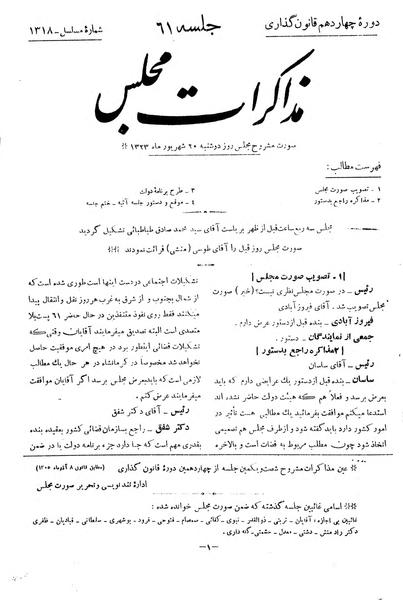 دورهٔ چهاردهم قانون‌گذاری
جلسه ۶۱
شمارهٔ مسلسل - ۱۳۱۸
مذاکرات مجلس
صورت مشروح مجلس روز دوشنبه ۲۰ شهریور ماه ۱۳۲۳
فهرست مطالب:
۱ - تصویب صورت مجلس
۲ - مذاکره راجع بدستور
۳ - طرح برنامهٔ دولت
۴ - موقع و دستور جلسه آتیه - ختم جلسه
مجلس سه ربع ساعت قبل از ظهر بریاست آقای سید محمد صادق طباطبائی تشکیل گردید
صورت مجلس روز قبل را آقای طوسی (منشی) قرائت نمودند
[۱ - تصویب صورت مجلس]
رئیس - در صورت مجلس نظری نیست؟ (خیر) صورت
مجلس تصویب شد. آقای فیروزآبادی
فیروزآبادی - بنده قبل از دستور عرض دارم.
جمعی از نمایندگان - دستور.
[۲ - مذاکره راجع بدستور]
رئیس - آقای ساسان
ساسان - بنده قبل از دستور یک عرایضی دارم که باید
بعرض برسد و فعلاً هم که هیئت دولت حاضر نشده اند
استدعا میکنم موافقت بفرمائید یک مطالبی هست تأثیر در
امور کشور دارد باید گفته شود و از طرف مجلس هم تصمیمی
اتخاذ شود چون مطلب مربوط به قضات است و بالاخره
تشکیلات اجتماعی درست اینها است طوری شده که
از شمال بجنوب و از شرق به غرب هر روز نقل و انتقال پیدا
میکنند فقط روی نفوذ متنفذین در حال حاضر ۶۱ پست بلا
متصدی است البته تصدیق میفرمایند آقایان وقتی که
تشکیلات قضائی اینطور برد در هیچ امری موفقیت حاصل
نخواهد شد مخصوصاً در کرمانشاه در هر حال یک مطالب
لازمی است که باید بعرض مجلس برسد اگر آقایان موافقت
میفرمایند عرض کنم.
رئیس - آقای دکتر شفق
دکتر شفق - راجع بسازمان قضائی کشور بعقیده بنده
بقدری مهم است که جا دارد جزء برنامه دولت یا در ضمن
عین مذاکرات مشروح شصت و یکمین جلسه از چهاردهمین دورهٔ قانون گذاری (مطابق قانون ۸ آذرماه ۱۳۰۵)
ادارهٔ تند نویسی و تحریر صورت مجلس
اسامی غائبین جلسه گذشته که ضمن صورت مجلس خوانده شده:
غائبین بی اجازه، آقایان - تربتی - ذوالقدر - نبوی - کفائی - صمصام - فتوحی - فرود - بوشهری - سلطانی - قبادیان - ظفری
دکتر رادمنش - دشتی - معدل - حشمتی - کله داری.
-۱-